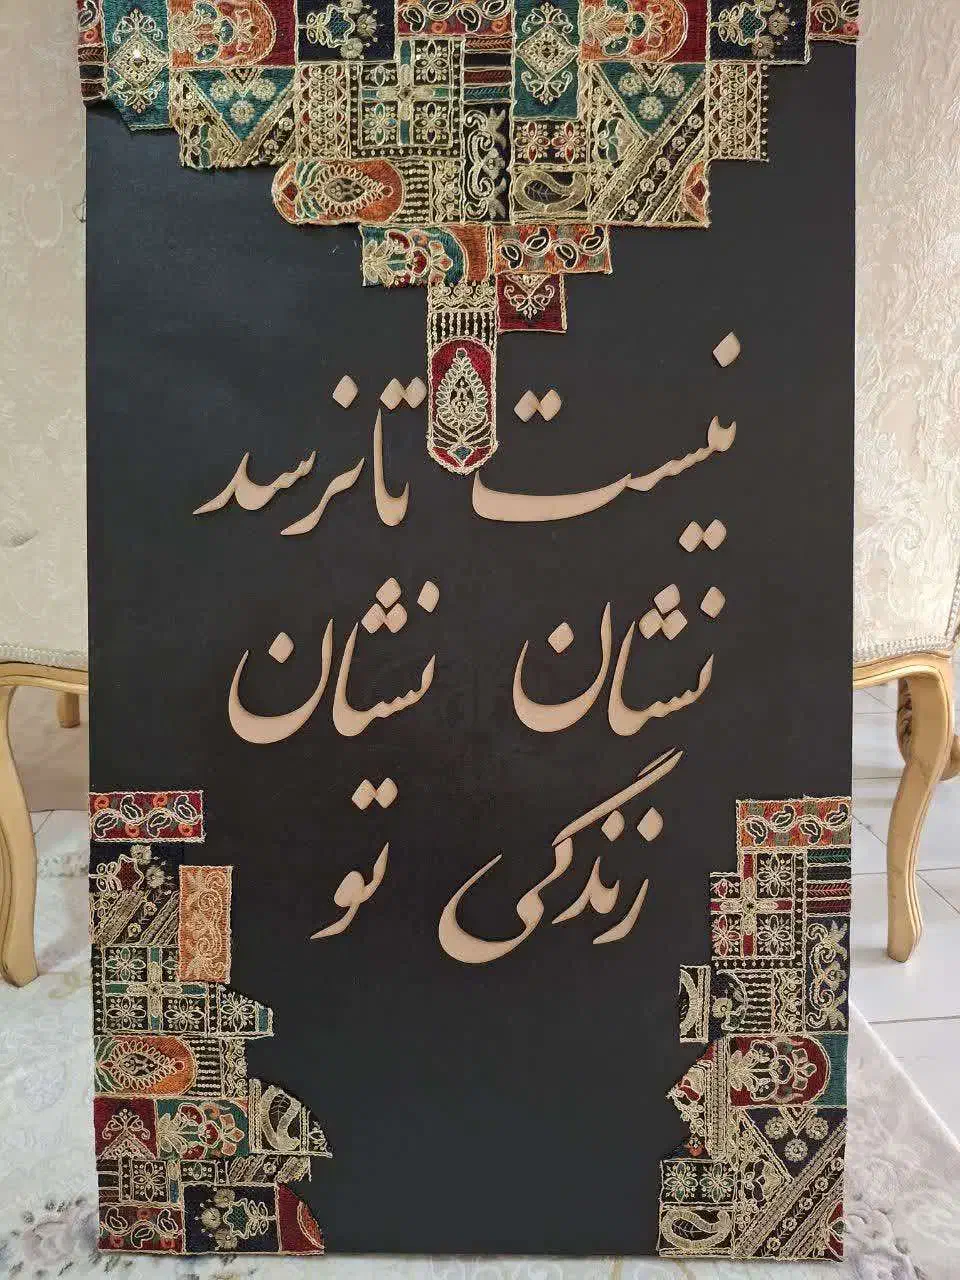 نیست تا نرسد
نشان نشان
زندگی تو